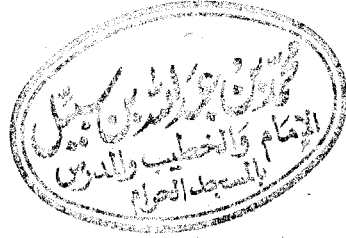 محمد بن عبد الله بن سبيل
الإمام والخطيب والمدرس
بالمسجد الحرام